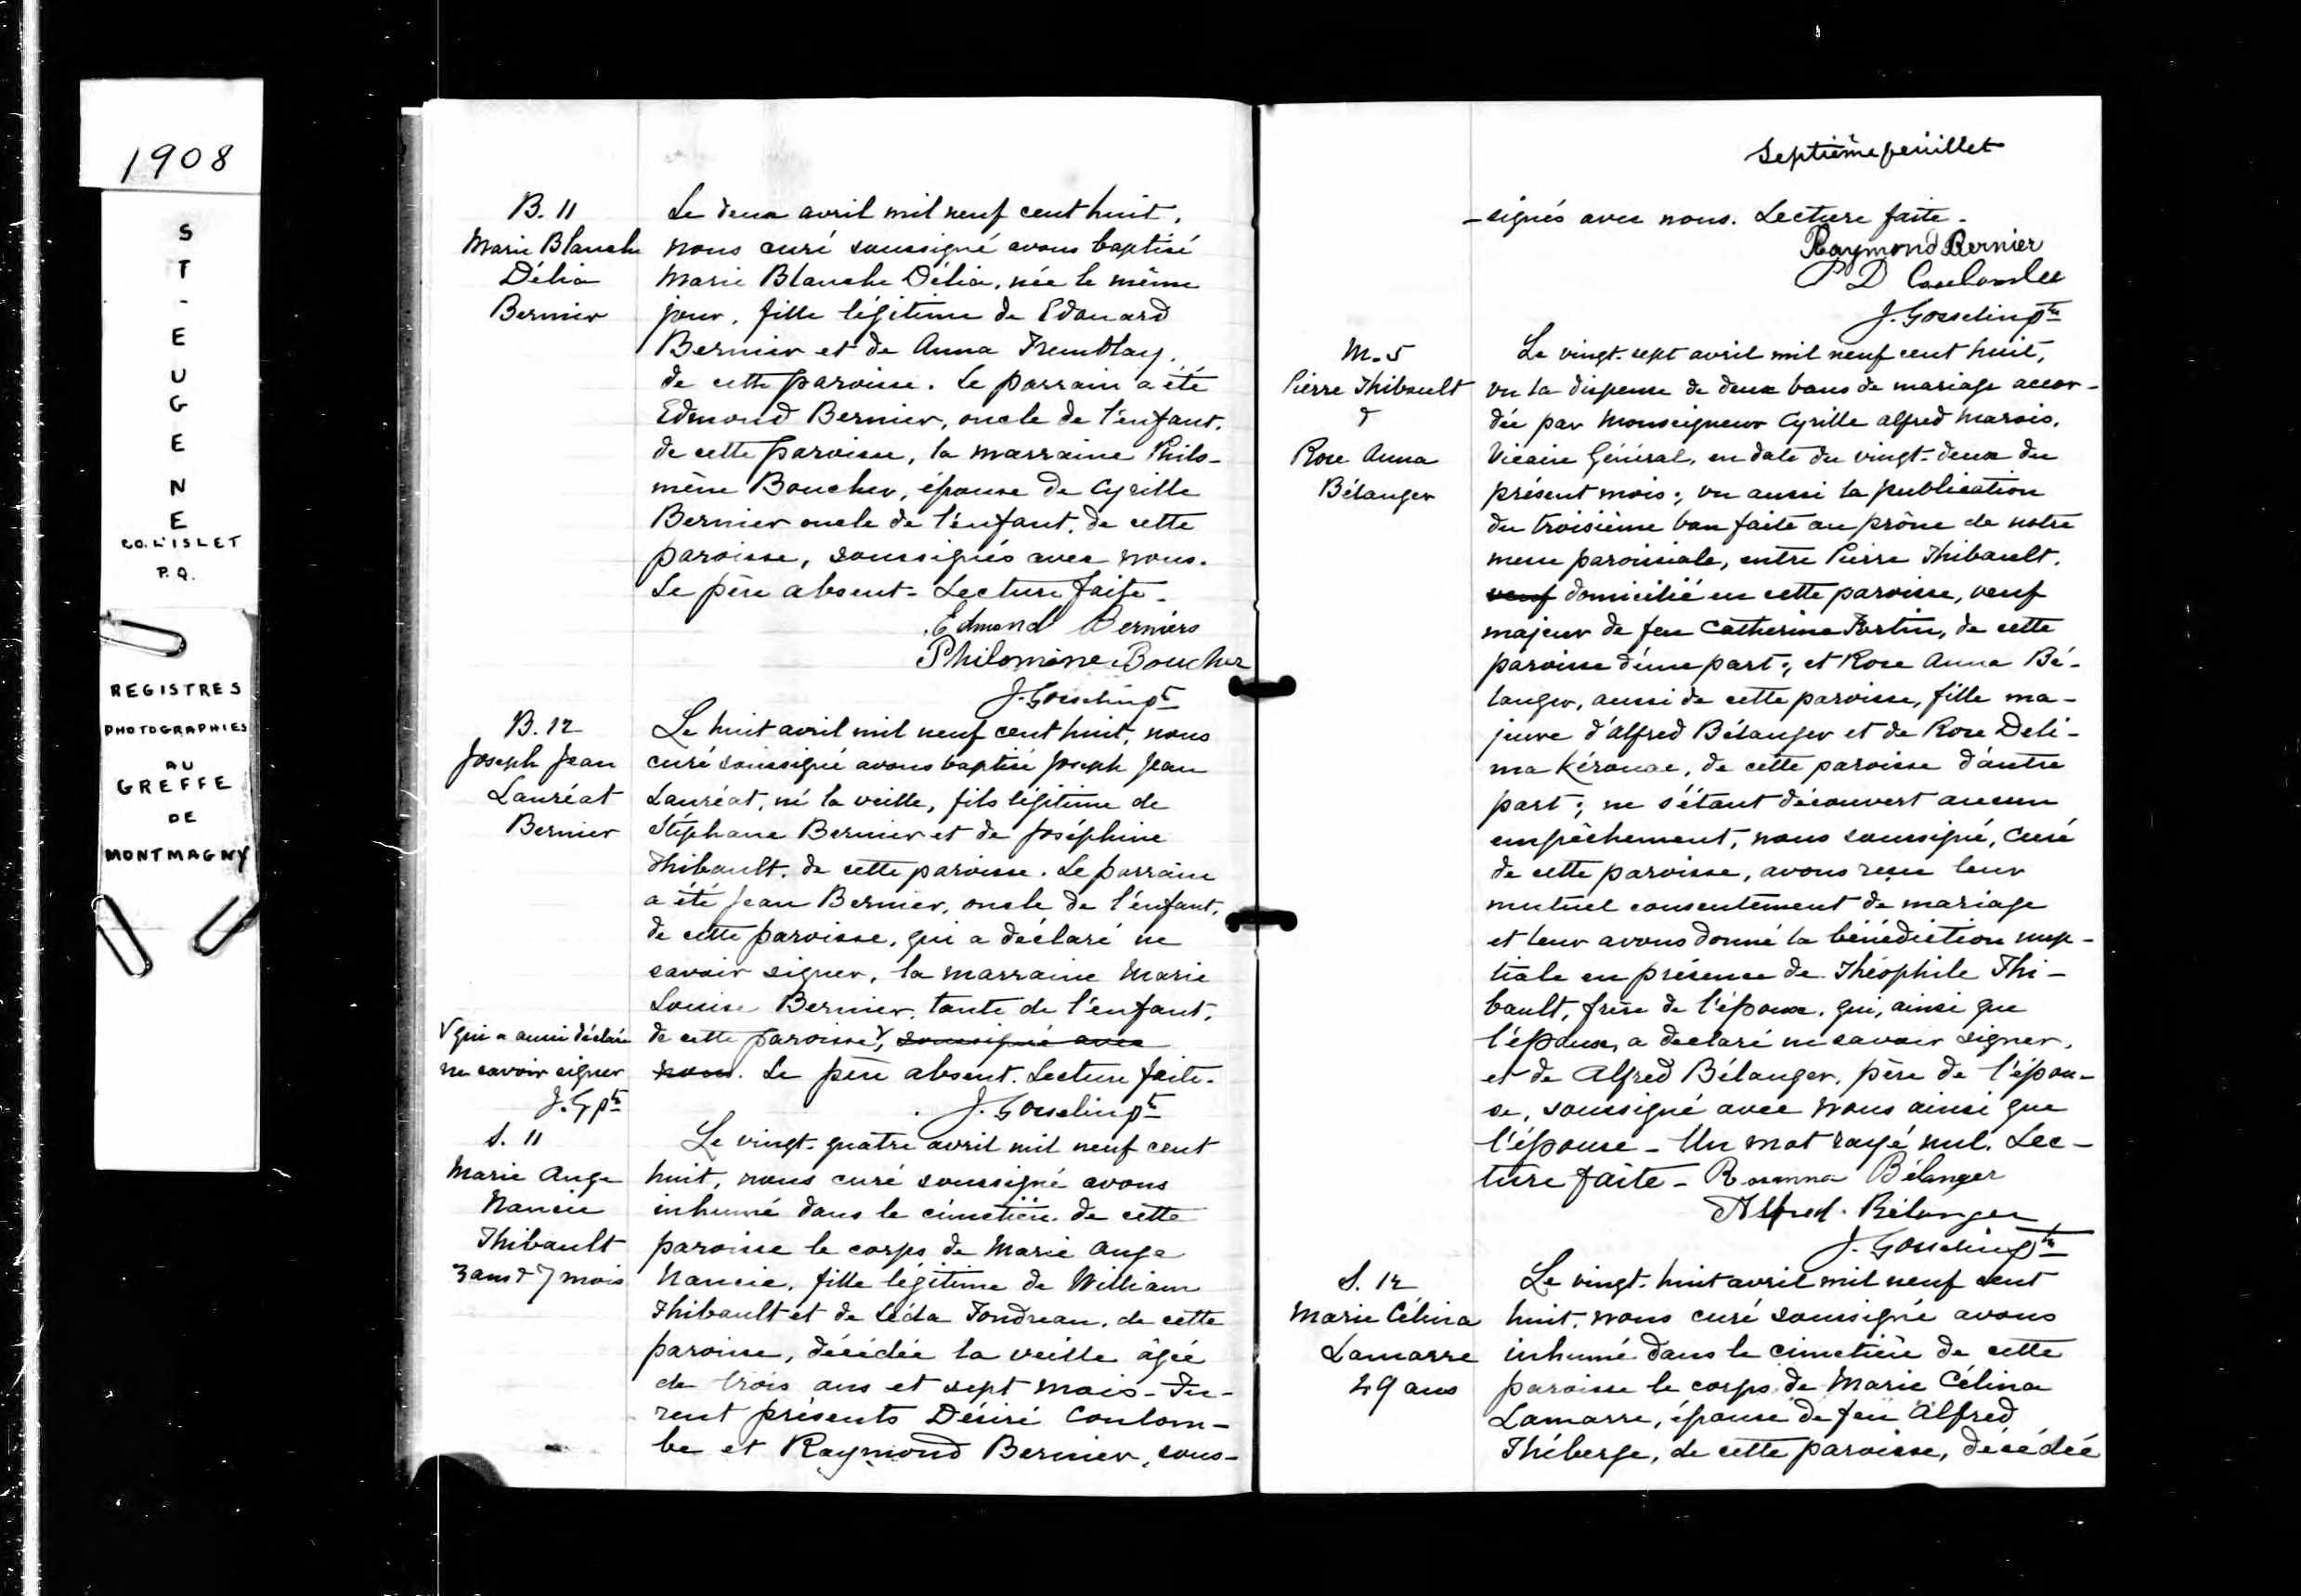 1908
ST-EUGENE
CO. L'ISLET
P.Q.
REGISTRES
PHOTOGRAPHIES
AU
GREFFE
DE
MONTMAGNY
B. 11
Marie Blanche
Délia
Bernier
Le deux avril mil neuf cent huit,
nous curé soussigné avons baptisé
Marie Blanche Délia, née le même
jour, fille légitime de Edouard
Bernier et de Anna Tremblay,
de cette paroisse. Le parrain a été
Edmond Bernier, oncle de l'enfant,
de cette paroisse, la marraine Philo-
mène Boucher, épouse de Cyrille
Bernier oncle de l'enfant, de cette
paroisse, soussignés avec nous.
Le père absent - Lecture faite -
Edmond Berniers
Philomène Boucher
J. Gosselin ptre
B. 12
Joseph Jean
Lauréat
Bernier
Le huit avril mil neuf cent huit, nous
curé soussigné avons baptisé Joseph Jean
Lauréat, né la veille, fils légitime de
Stéphane Bernier et de Joséphine
Thibault, de cette paroisse. Le parrain
a été Jean Bernier, oncle de l'enfant,
de cette paroisse, qui a déclaré ne
savoir signer, la marraine Marie
Louise Bernier, tante de l'enfant,
de cette paroisse √, soussigné avec
nous. Le père absent. Lecture faite.
√ qui a aussi déclaré
ne savoir signer
J. G ptre
J. Gosselin ptre
S. 11
Marie Ange
Nancie
Thibault
3 ans & 7 mois
Le vingt-quatre avril mil neuf cent
huit, nous curé soussigné avons
inhumé dans le cimetière de cette
paroisse le corps de Marie Ange
Nancie, fille légitime de William
Thibault et de Léda Fondreau, de cette
paroisse, décédée la veille âgée
de trois ans et sept mois - Fu-
rent présents Désiré Coulom-
be et Raymond Bernier, sous-
Septième feuillet
- signés avec nous. Lecture faite -
Raymond Bernier
P D Coulombe
J. Gosselin ptre
M. 5
Pierre Thibault
&
Rose Anna
Bélanger
Le vingt-sept avril mil neuf cent huit,
vu la dispense de deux bans de mariage accor-
dée par Monseigneur Cyrille Alfred Marois,
Vicaire Général, en date du vingt-deux du
présent mois; vu aussi la publication
du troisième ban faite au prône de notre
messe paroissiale, entre Pierre Thibault,
veuf domicilié en cette paroisse, veuf
majeur de feu Catherine Fortin, de cette
paroisse d'une part; et Rose Anna Bé-
langer, aussi de cette paroisse, fille ma-
jeure d'Alfred Bélanger et de Rose Deli-
ma Kérouac, de cette paroisse d'autre
part; ne s'étant découvert aucun
empêchement, nous soussigné, Curé
de cette paroisse, avons reçu leur
mutuel consentement de mariage
et leur avons donné la bénédiction nup-
tiale en présence de Théophile Thi-
bault, frère de l'époux, qui, ainsi que
l'époux, a declaré ne savoir signer,
et de Alfred Bélanger, père de l'épou-
se, soussigné avec nous ainsi que
l'épouse - Un mot rayé nul. Lec-
ture faite - Rosanna Bélanger
Alfred Bélanger
J. Gosselin ptre
S. 12
Marie Célina
Lamarre
49 ans
Le vingt-huit avril mil neuf cent
huit, nous curé soussigné avons
inhumé dans le cimetière de cette
paroisse le corps de Marie Célina
Lamarre, épouse de feu Alfred
Théberge, de cette paroisse, décédée